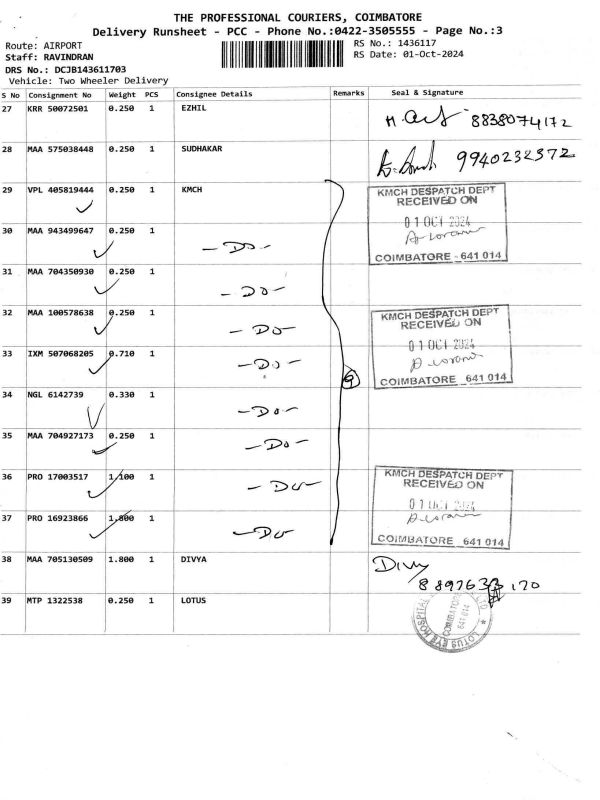 THE PROFESSIONAL COURIERS, COIMBATORE
Delivery Runsheet - PCC - Phone No.:0422-3505555 - Page No.:3
Route: AIRPORT
RS No.: 1436117
Staff: RAVINDRAN
RS Date: 01-Oct-2024
DRS No.: DCJB143611703
Vehicle: Two Wheeler Delivery
S No Consignment No Weight PCS Consignee Details Remarks Seal & Signature
27 KRR 50072501 0.250 1 EZHIL
8838074172
28 MAA 575038448 0.250 1 SUDHAKAR
9940232372
29 VPL 405819444 0.250 1 KMCH
KMCH DESPATCH DEPT
RECEIVED ON
01 OCT 2024
COIMBATORE - 641 014
30 MAA 943499647 0.250 1 -Do-
31 MAA 704350930 0.250 1 -Do-
32 MAA 100578638 0.250 1 -Do-
KMCH DESPATCH DEPT
RECEIVED ON
01 OCT 2024
COIMBATORE 641 014
33 IXM 507068205 0.710 1 -Do-
9
34 NGL 6142739 0.330 1 -Do-
35 MAA 704927173 0.250 1 -Do-
36 PRO 17003517 1.100 1 -Do-
KMCH DESPATCH DEPT
RECEIVED ON
01 OCT 2024
COIMBATORE 641 014
37 PRO 16923866 1.800 1 -Do-
38 MAA 705130509 1.800 1 DIVYA
Divy
39 MTP 1322538 0.250 1 LOTUS
LOTUS EYE HOSPITAL
COIMBATORE
641 014
LTD